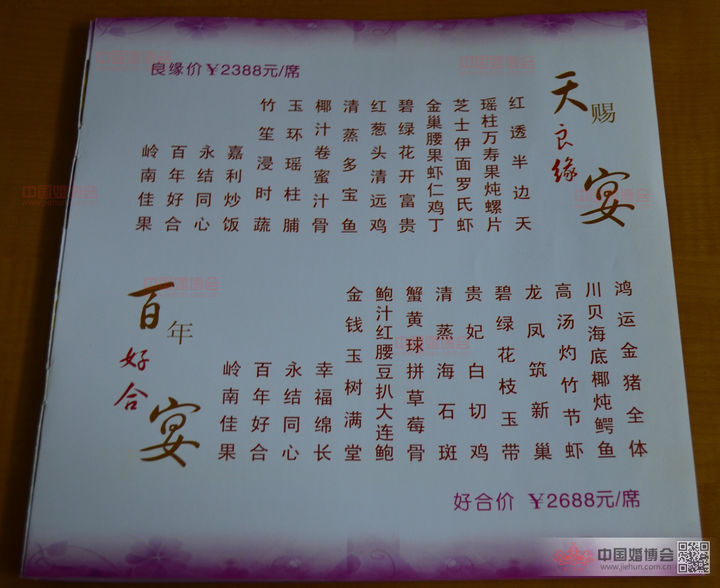 天赐良缘宴
良缘价￥2388元/席
红透半边天
瑶柱万寿果炖螺片
芝士伊面罗氏虾
金巢腰果虾仁鸡丁
碧绿花开富贵
红葱头清远鸡
清蒸多宝鱼
椰汁卷蜜汁骨
玉环瑶柱脯
竹笙浸时蔬
嘉利炒饭
永结同心
百年好合
岭南佳果
百年好合宴
鸿运金猪全体
川贝海底椰炖鳄鱼
高汤灼竹节虾
龙凤筑新巢
碧绿花枝玉带
贵妃白切鸡
清蒸海石斑
蟹黄球拼草莓骨
鲍汁红腰豆扒大连鲍
金钱玉树满堂
幸福绵长
永结同心
百年好合
岭南佳果
好合价 ￥2688元/席
中国婚博会
www.jiehun.com.cn